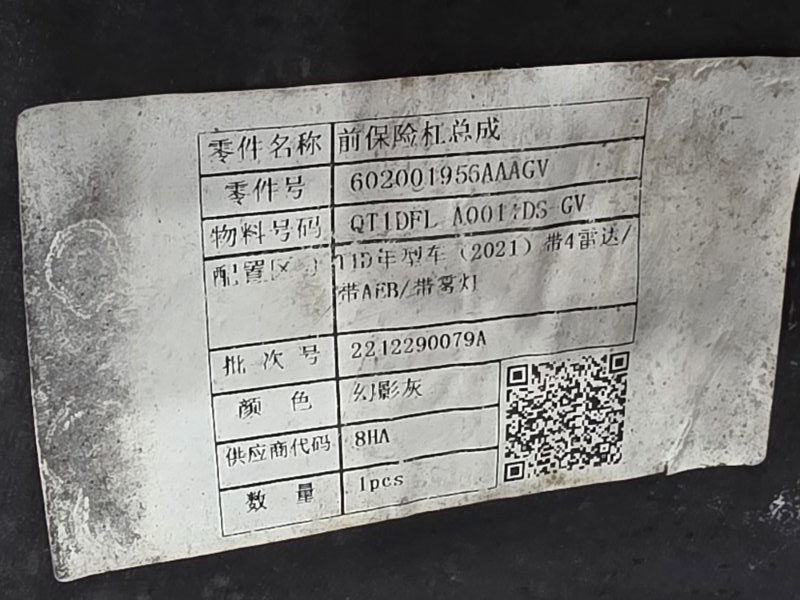 零件名称 前保险杠总成
零件号 602001956AAAGV
物料号码 QT1DFL A001 DS-GV
配置区 年型车（2021）带4雷达/
带AEB/带雾灯
批次号 2212290079A
颜色 幻影灰
供应商代码 8HA
数量 1pcs